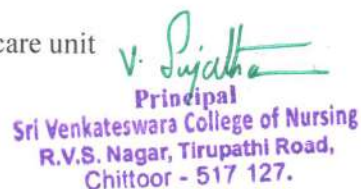 care unit
V. Sujatha
Principal
Sri Venkateswara College of Nursing
R.V.S. Nagar, Tirupathi Road,
Chittoor - 517 127.